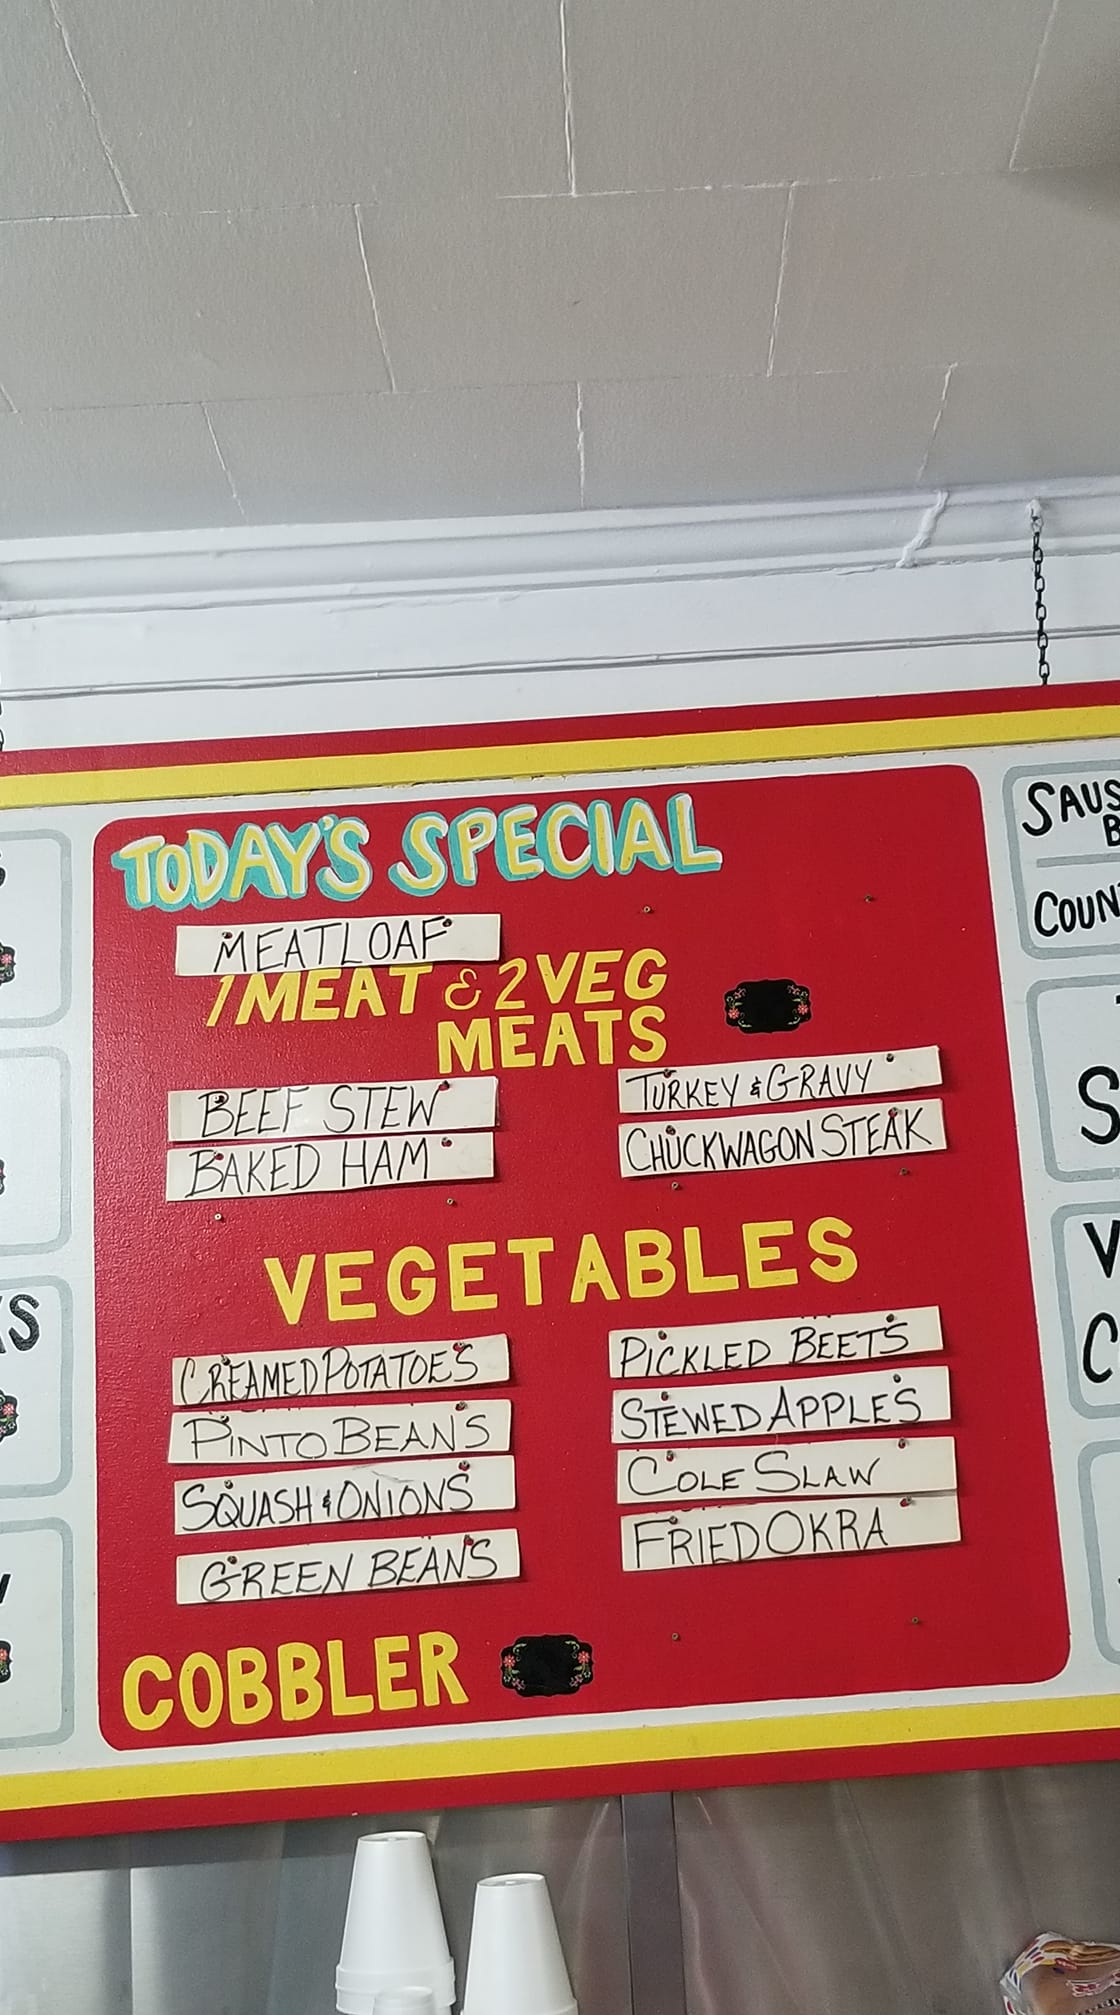 TODAY'S SPECIAL
MEATLOAF
1 MEAT & 2 VEG
MEATS
BEEF STEW
BAKED HAM
TURKEY & GRAVY
CHUCKWAGON STEAK
VEGETABLES
CREAMED POTATOES
PINTO BEANS
SQUASH & ONIONS
GREEN BEANS
PICKLED BEETS
STEWED APPLES
COLE SLAW
FRIED OKRA
COBBLER